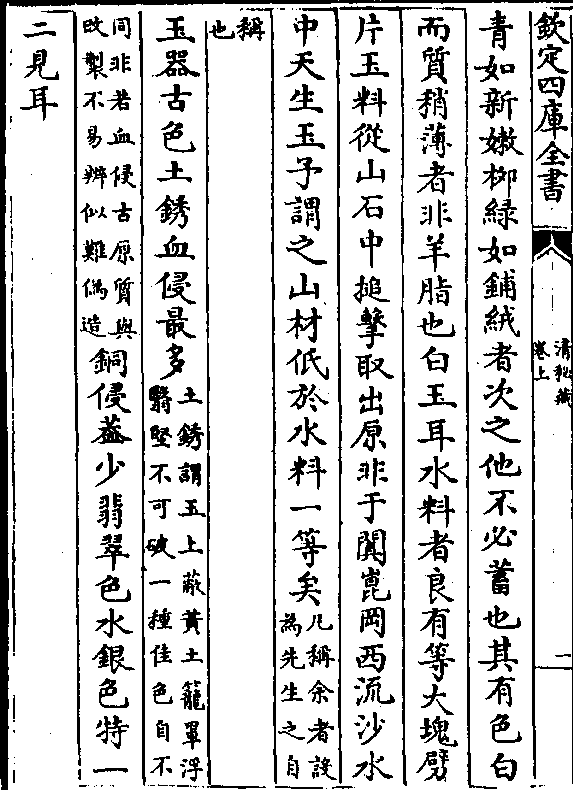 欽定四庫全書
清秘藏
卷上
一
青如新嫩柳綠如鋪絨者次之他不必蓄也其有色白
而質稍薄者非羊脂也白玉耳水料者良有等大塊劈
片玉料從山石中搥擊取出原非于闐崑岡西流沙水
中天生玉予謂之山材低於水料一等矣
凡稱余者設
為先生之自
稱
也
玉器古色土銹血侵最多
土銹謂玉上蔽黃土籠罩浮
翳堅不可破一種佳色自不
同非若血侵古原質與
改製不易辨似難偽造
銅侵葢少翡翠色水銀色特一
二見耳